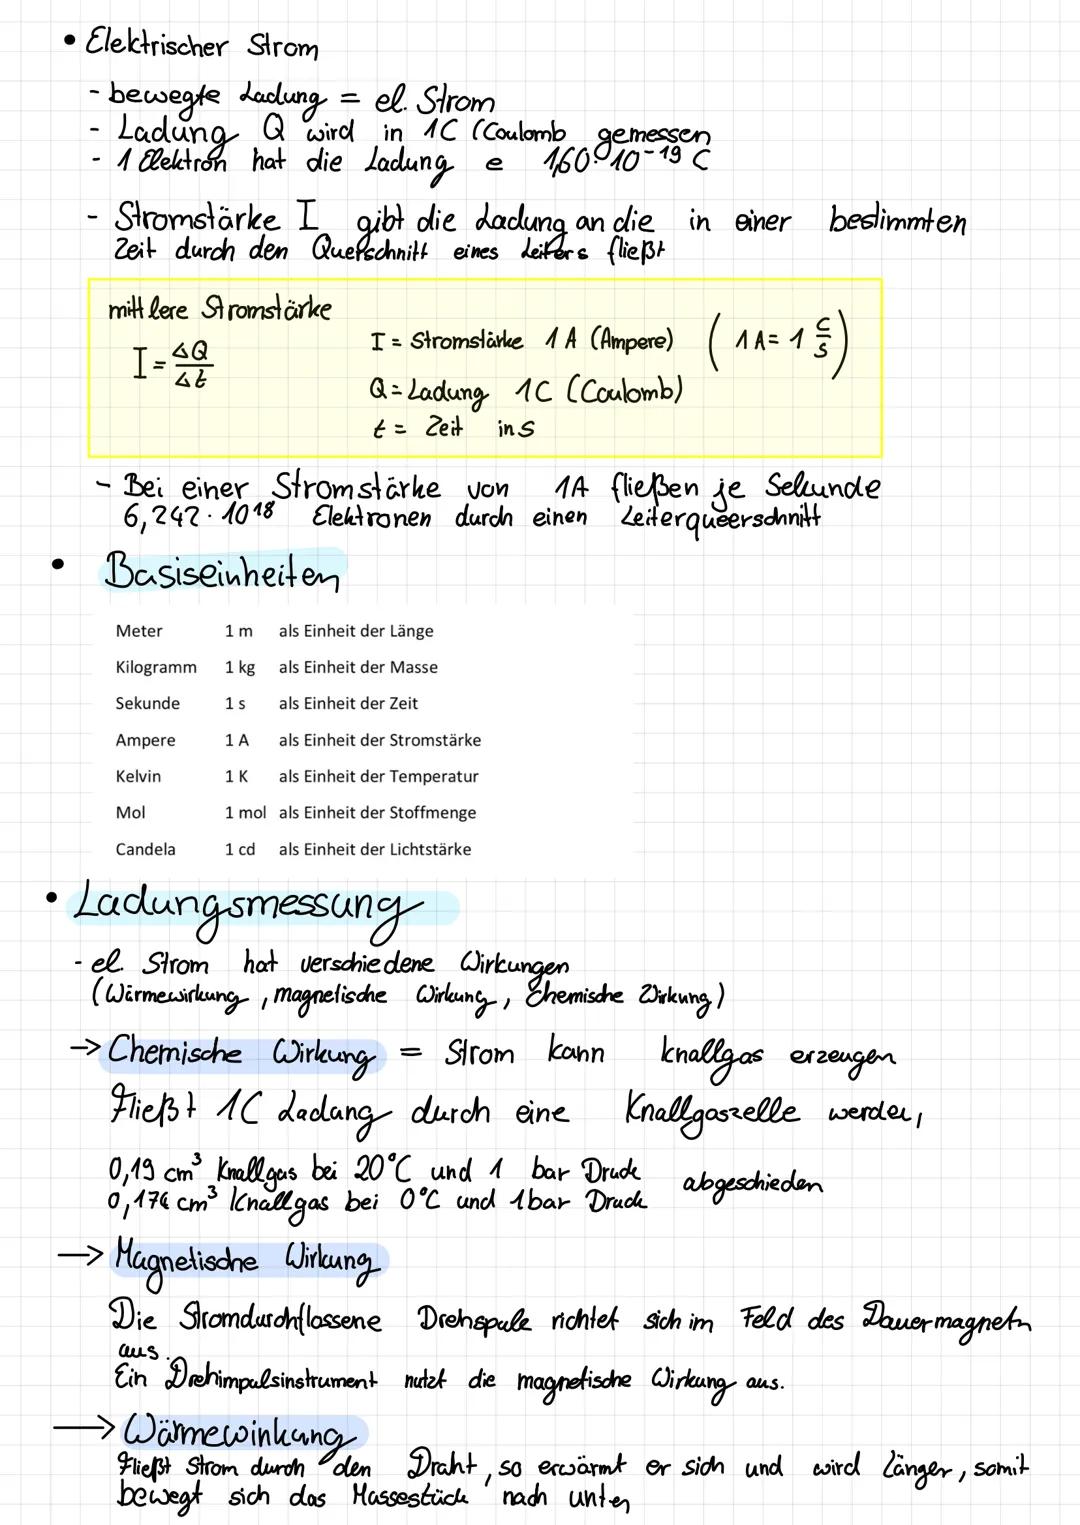 • Elektrischer Strom
- bewegte Ladung = el. Strom
- Ladung Q wird in 1C (Coulomb gemessen
- 1 Elektron hat die Ladung e 1,60·10⁻¹⁹ C
- Stromstärke I gibt die Ladung an die in einer bestimmten
Zeit durch den Querschnitt eines Leiters fließt
mittlere Stromstärke
I = ΔQ/Δt
I = Stromstärke 1 A (Ampere) (1 A = 1 C/S)
Q = Ladung 1C (Coulomb)
t = Zeit in s
- Bei einer Stromstärke von 1A fließen je Sekunde
6,242·10¹⁸ Elektronen durch einen Leiterqueerschnitt
• Basiseinheiten
Meter 1 m als Einheit der Länge
Kilogramm 1 kg als Einheit der Masse
Sekunde 1 s als Einheit der Zeit
Ampere 1 A als Einheit der Stromstärke
Kelvin 1 K als Einheit der Temperatur
Mol 1 mol als Einheit der Stoffmenge
Candela 1 cd als Einheit der Lichtstärke
• Ladungsmessung
- el. Strom hat verschiedene Wirkungen
(Wärmewirkung, magnetische Wirkung, Chemische Wirkung)
→ Chemische Wirkung = Strom kann knallgas erzeugen
Fließt 1C Ladung durch eine Knallgaszelle werden,
0,19 cm³ Knallgas bei 20°C und 1 bar Druck
0,174 cm³ Knallgas bei 0°C und 1bar Druck abgeschieden
→ Magnetische Wirkung
Die Stromdurchflossene Drehspule richtet sich im Feld des Dauermagneten
aus.
Ein Drehimpulsinstrument nutzt die magnetische Wirkung aus.
→ Wärmewirkung
Fließt Strom durch den Draht, so erwärmt er sich und wird Länger, somit
bewegt sich das Massestück nach unten